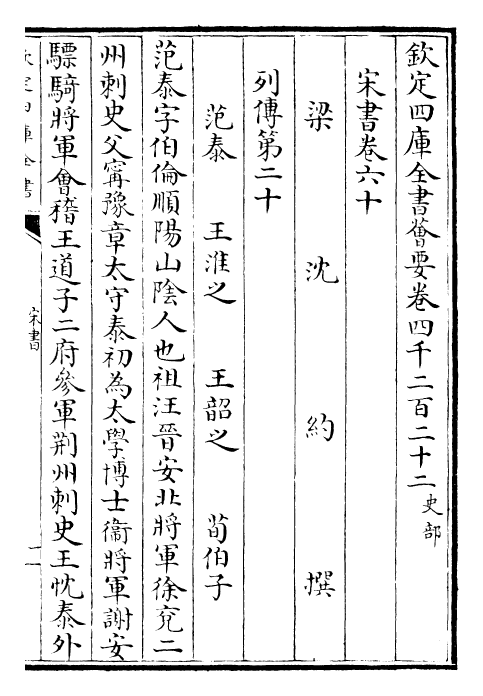 欽定四庫全書薈要卷四千二百二十二史部
宋書卷六十
梁沈約撰
列傳第二十
范泰 王淮之 王韶之 荀伯子
范泰字伯倫順陽山陰人也祖汪晉安北將軍徐兗二
州刺史父甯豫章太守泰初為太學博士衞將軍謝安
驃騎將軍會稽王道子二府參軍荆州刺史王忱泰外
欽定四庫全書
宋書
一